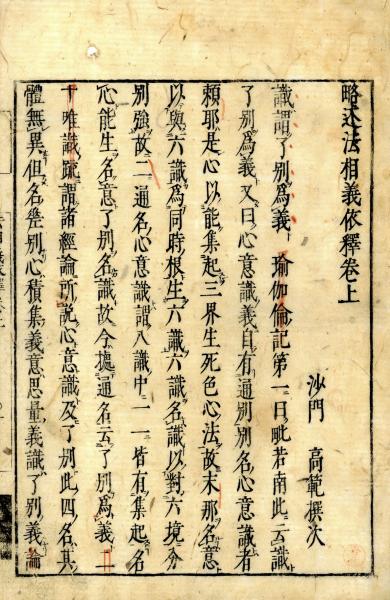 略述法相義依釋卷上
沙門 高範撰次
識謂了別爲義 瑜伽倫記第一曰毗若南此云識
了別爲義又曰心意識義自有通別別名心意識者
賴耶是心以能集起三界生死色心法故末那名意
以與六識爲同時根生六識六識名識以對六境分
別強故二通名心意識謂八識中一一皆有集起名
心能生名意了別名識故今摠通名云了別爲義 二
十唯識疏謂諸經論所說心意識及了別此四名其
體無異但名差別心積集義意思量義識了別義論